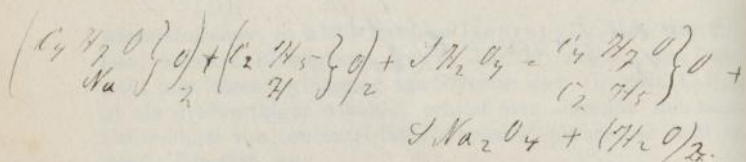 (C4 H7 O } O)2 + (C2 H5 } O)2 + S H2 O4 = C4 H7 O } O +
Na H C2 H5
S Na2 O4 + (H2 O)2.